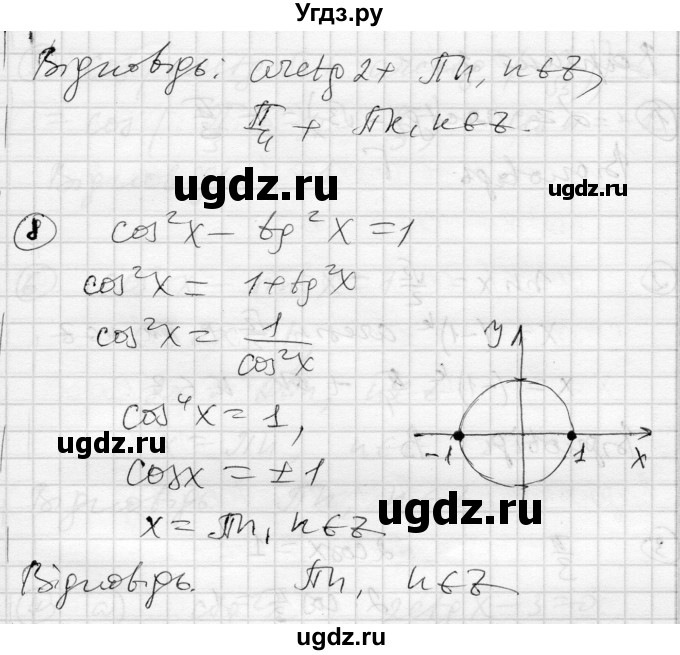 Угдз.ру
Відповідь: arctg 2 + πn, n ∈ Z,
π/4 + πk, k ∈ Z.
ugdz.ru ugdz.ru
8 cos²x − tg²x = 1
cos²x = 1 + tg²x
cos²x = 1/cos²x
y
cos⁴x = 1,
ugdz.ru -1 1 x
cosx = ±1
ugdz.ru
x = πn, n ∈ Z
Відповідь. πn, n ∈ Z
ugdz.ru